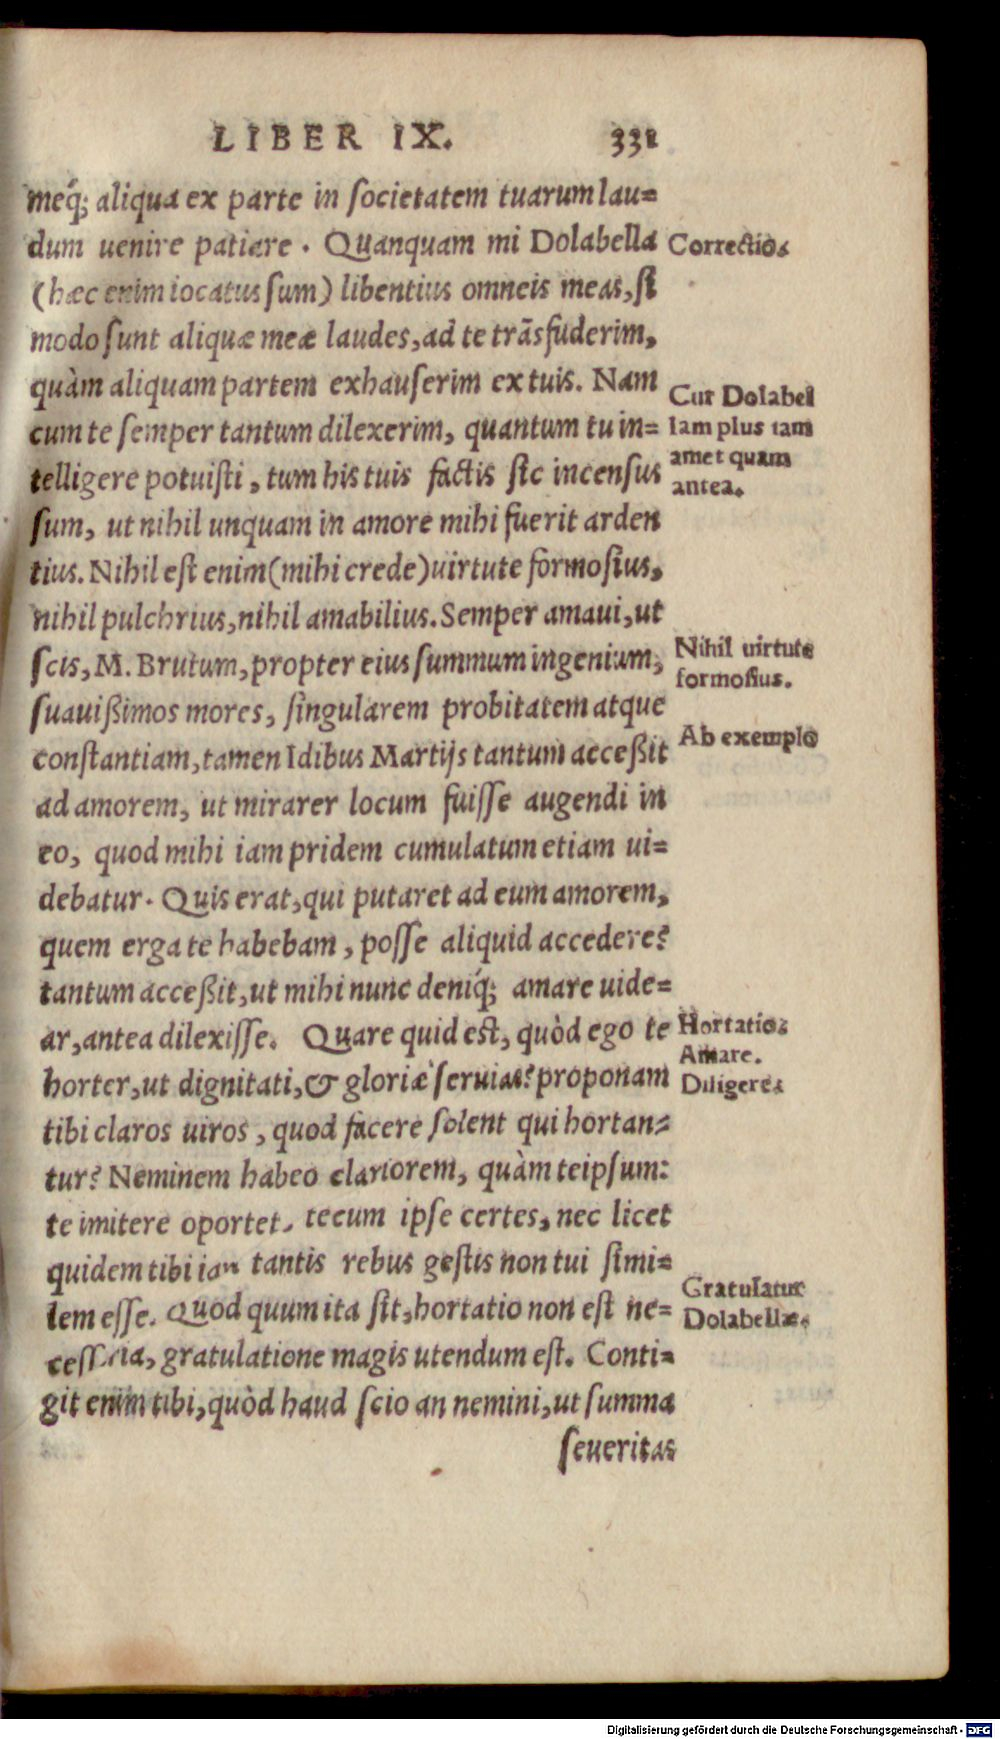 LIBER IX. 331
meq́; aliqua ex parte in societatem tuarum lau=
dum uenire patiare. Quanquam mi Dolabella
Correctio.
(hæc enim iocatus sum) libentius omneis meas, si
modo sunt aliquæ meæ laudes, ad te trāsfuderim,
quàm aliquam partem exhauserim ex tuis. Nam
cum te semper tantum dilexerim, quantum tu in=
telligere potuisti, tum his tuis factis sic incensus
Cur Dolabel
lam plus tam
amet quam
antea.
sum, ut nihil unquam in amore mihi fuerit arden
tius. Nihil est enim (mihi crede) uirtute formosius,
nihil pulchrius, nihil amabilius. Semper amaui, ut
scis, M. Brutum, propter eius summum ingenium,
Nihil uirtute
formosius.
suauißimos mores, singularem probitatem atque
constantiam, tamen Idibus Martijs tantum acceßit
Ab exemplo
ad amorem, ut mirarer locum fuisse augendi in
eo, quod mihi iam pridem cumulatum etiam ui=
debatur. Quis erat, qui putaret ad eum amorem,
quem erga te habebam, posse aliquid accedere?
tantum acceßit, ut mihi nunc deniq́; amare uide=
ar, antea dilexisse. Quare quid est, quòd ego te
Hortatio.
Amare.
Diligere.
horter, ut dignitati, & gloriæ seruias? proponam
tibi claros uiros, quod facere solent qui hortan=
tur? Neminem habeo clariorem, quàm teipsum:
te imitere oportet, tecum ipse certes, nec licet
quidem tibi iam tantis rebus gestis non tui simi=
lem esse. Quod quum ita sit, hortatio non est ne=
Gratulatur
Dolabellæ.
cessaria, gratulatione magis utendum est. Conti=
git enim tibi, quòd haud scio an nemini, ut summa
seueritas
Digitalisierung gefördert durch die Deutsche Forschungsgemeinschaft - DFG